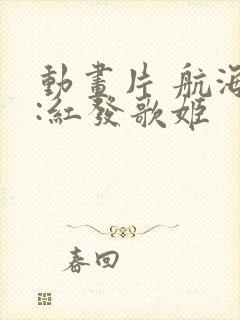 動畫片 航海
:紅發歌姬
春回